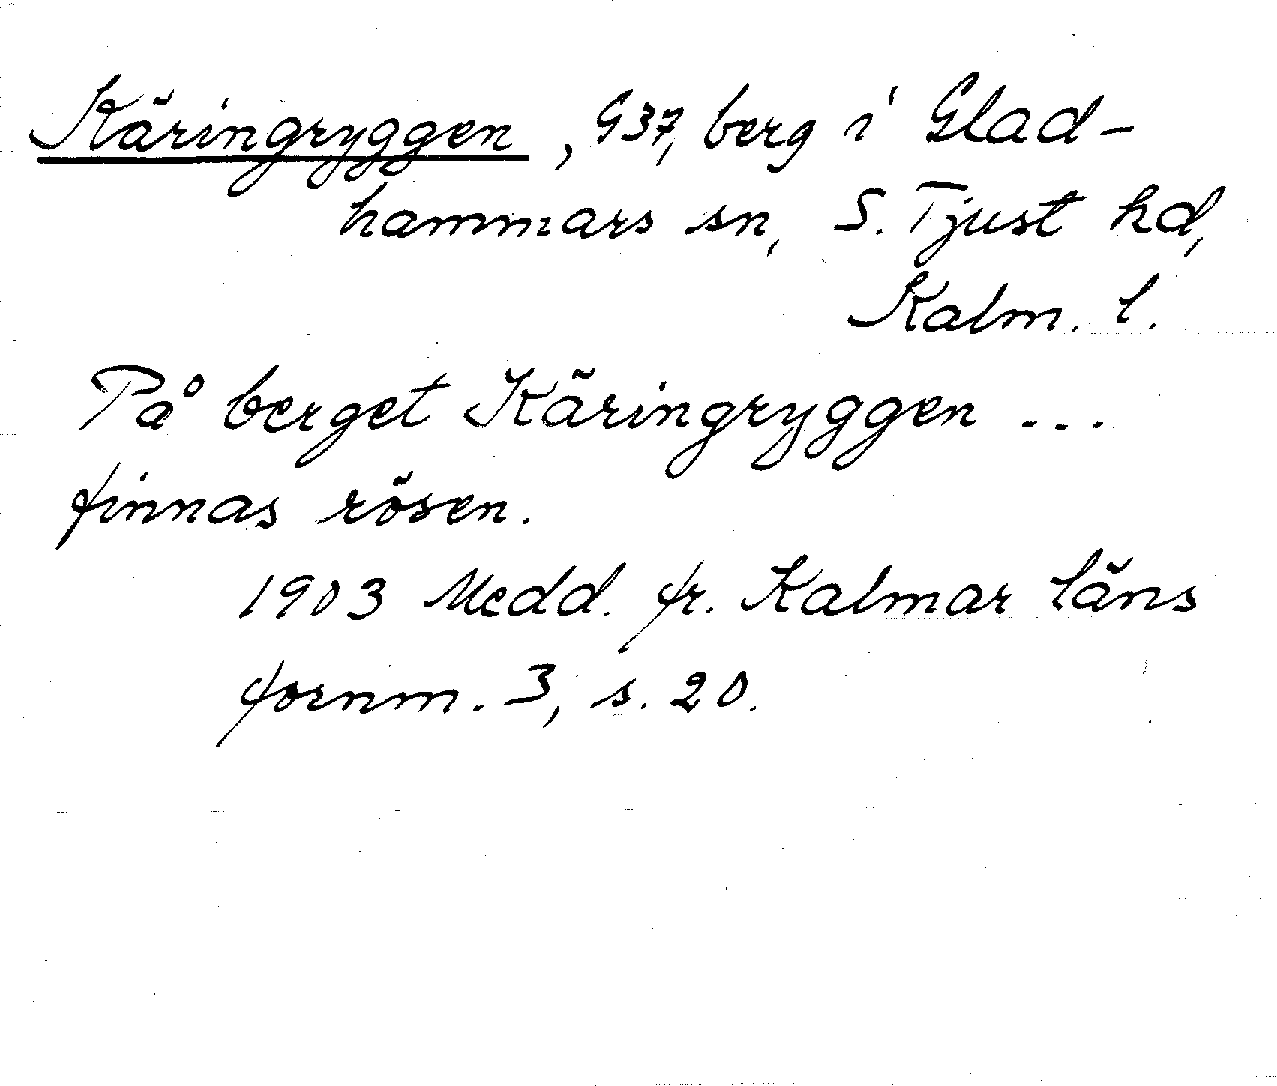 Käringryggen, G37, berg i Glad-
hammars sn, S. Tjust hd,
Kalm. l.
På berget Käringryggen ...
finnas rösen.
1903 Medd. fr. Kalmar läns
fornm. 3, s. 20.